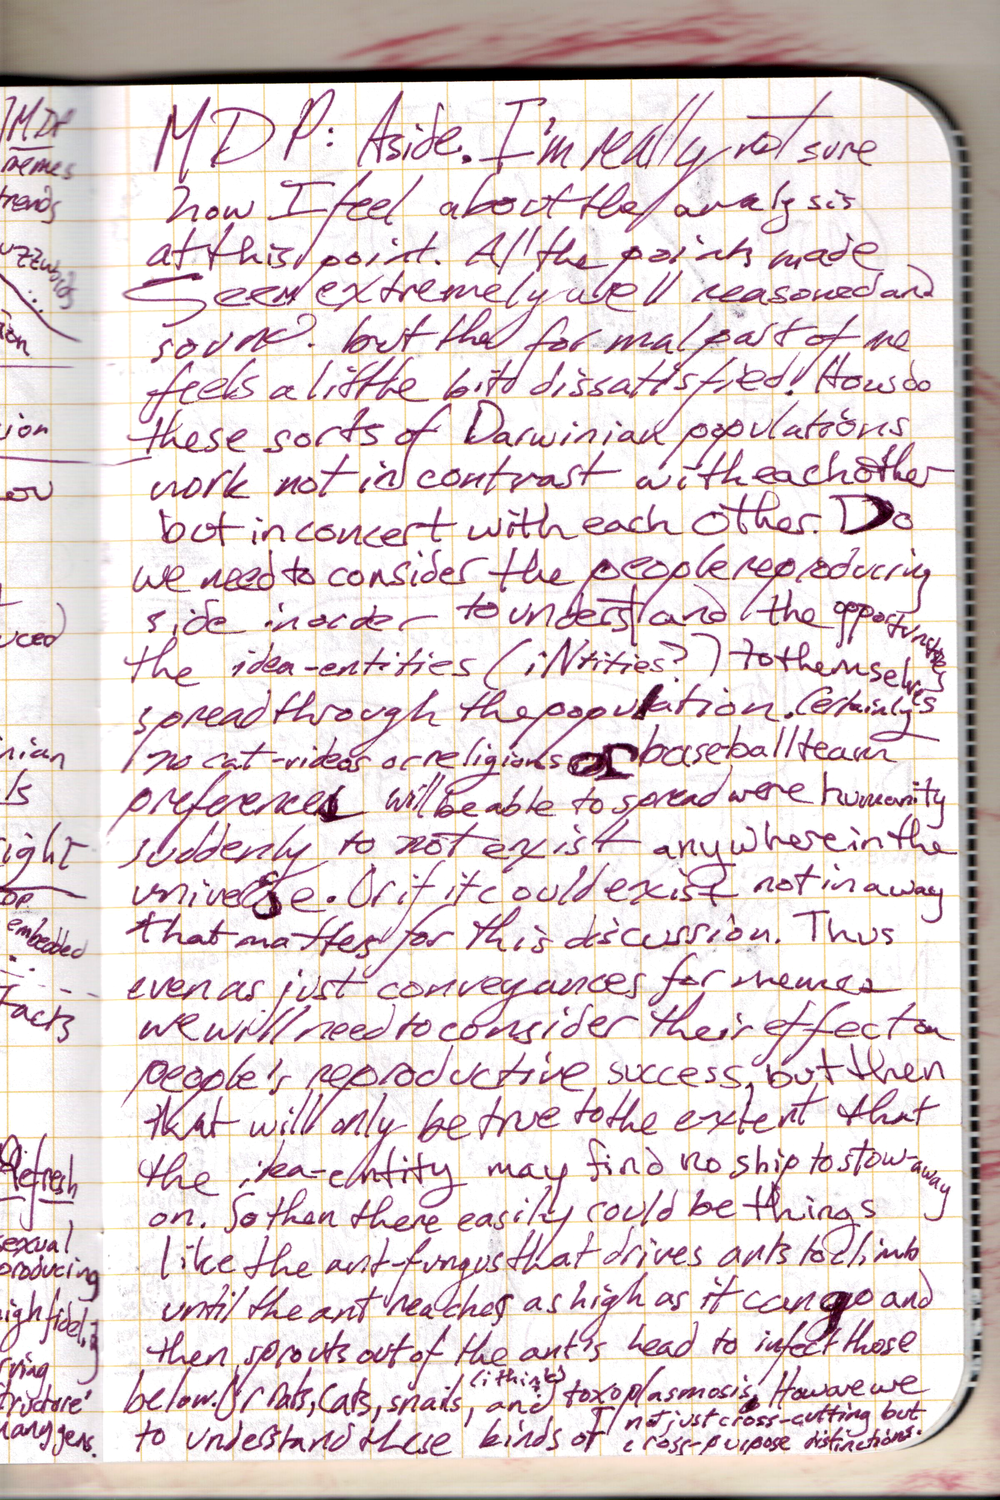 MDP
memes
trends
uzzwords
...
ion
sion
uced
nian
ls
right
embedded
facts
Refresh
sexual
producing
high fidel.
structure'
many gens.
MDP: Aside. I'm really not sure
how I feel about the analysis
at this point. All the points made
Seem extremely well reasoned and
sound. but the formal part of me
feels a little bit dissattisfied! How do
these sorts of Darwinian populations
work not in contrast with each other
but in concert with each other. Do
we need to consider the people reproducing
side in order to understand the opportunities
the idea-entities (iNtities?) to themselves
spread through the population. Certainly
no cat-videos or religions or baseball team
preferences will be able to spread were humanity
suddenly to not exist anywhere in the
universe. Or if it could exist not in a way
that matters for this discussion. Thus
even as just conveyances for memes
we will need to consider their effect on
people's reproductive success, but then
that will only be true to the extent that
the idea-entity may find no ship to stow-away
on. So then there easily could be things
like the ant-fungus that drives ants to climb
until the ant reaches as high as it can go and
then sprouts out of the ant's head to infect those
below. Or rats, cats, snails, (i think) and toxoplasmosis. How are we
to understand these kinds of not just cross-cutting but
cross-purpose distinctions.